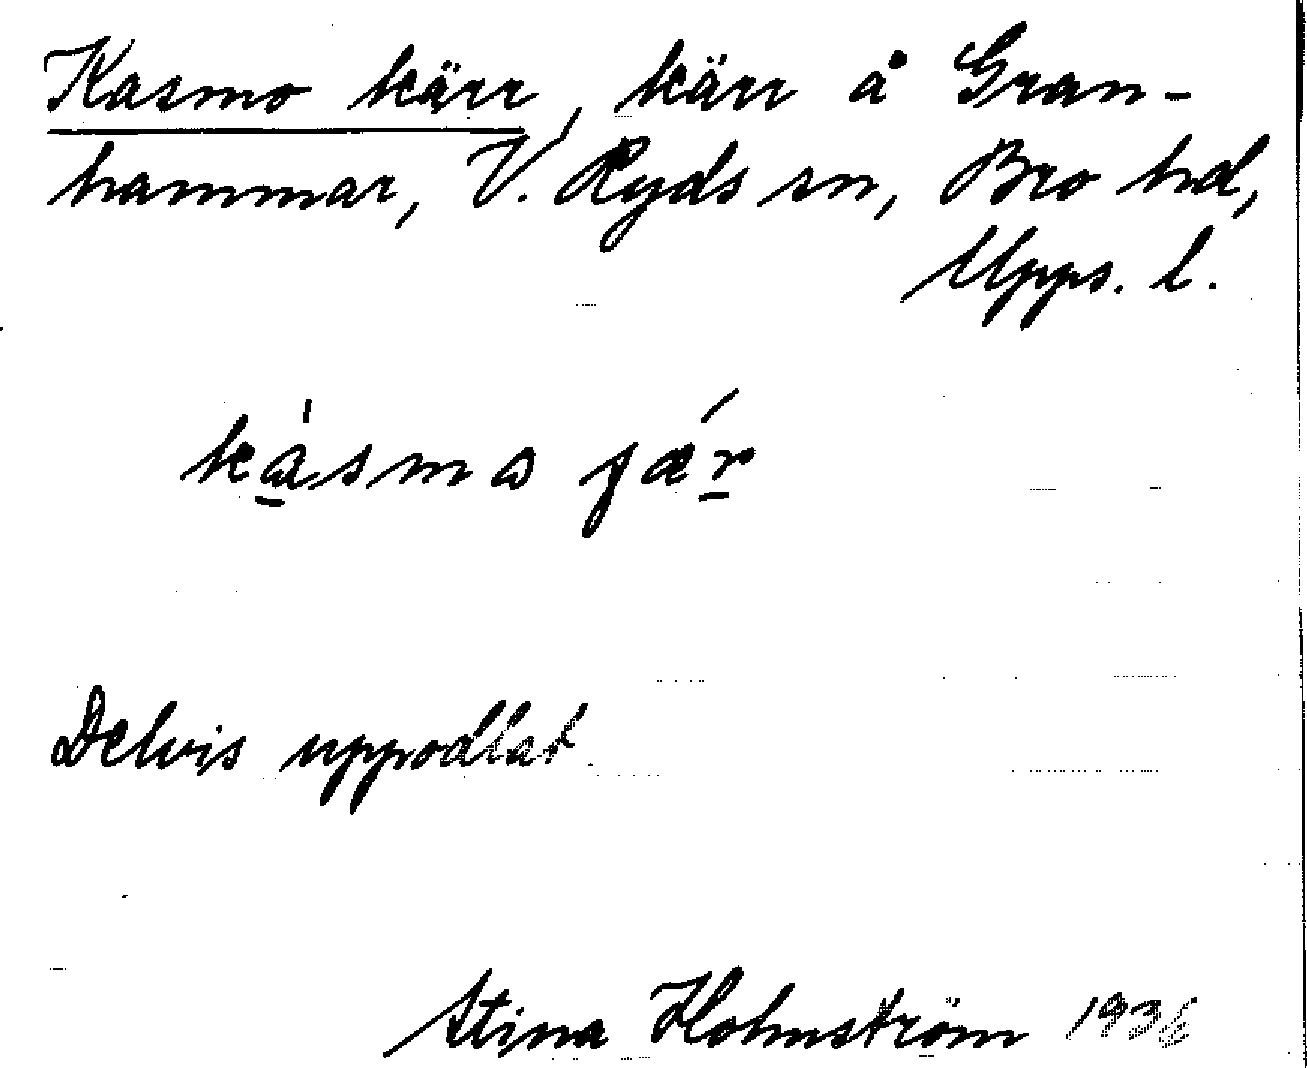 Kasmo kärr, kärr å Gran-
hammar, V. Ryds sn, Bro hd,
Upps. l.
kásmo jær
Delvis uppodlat
Stina Holmström 1936